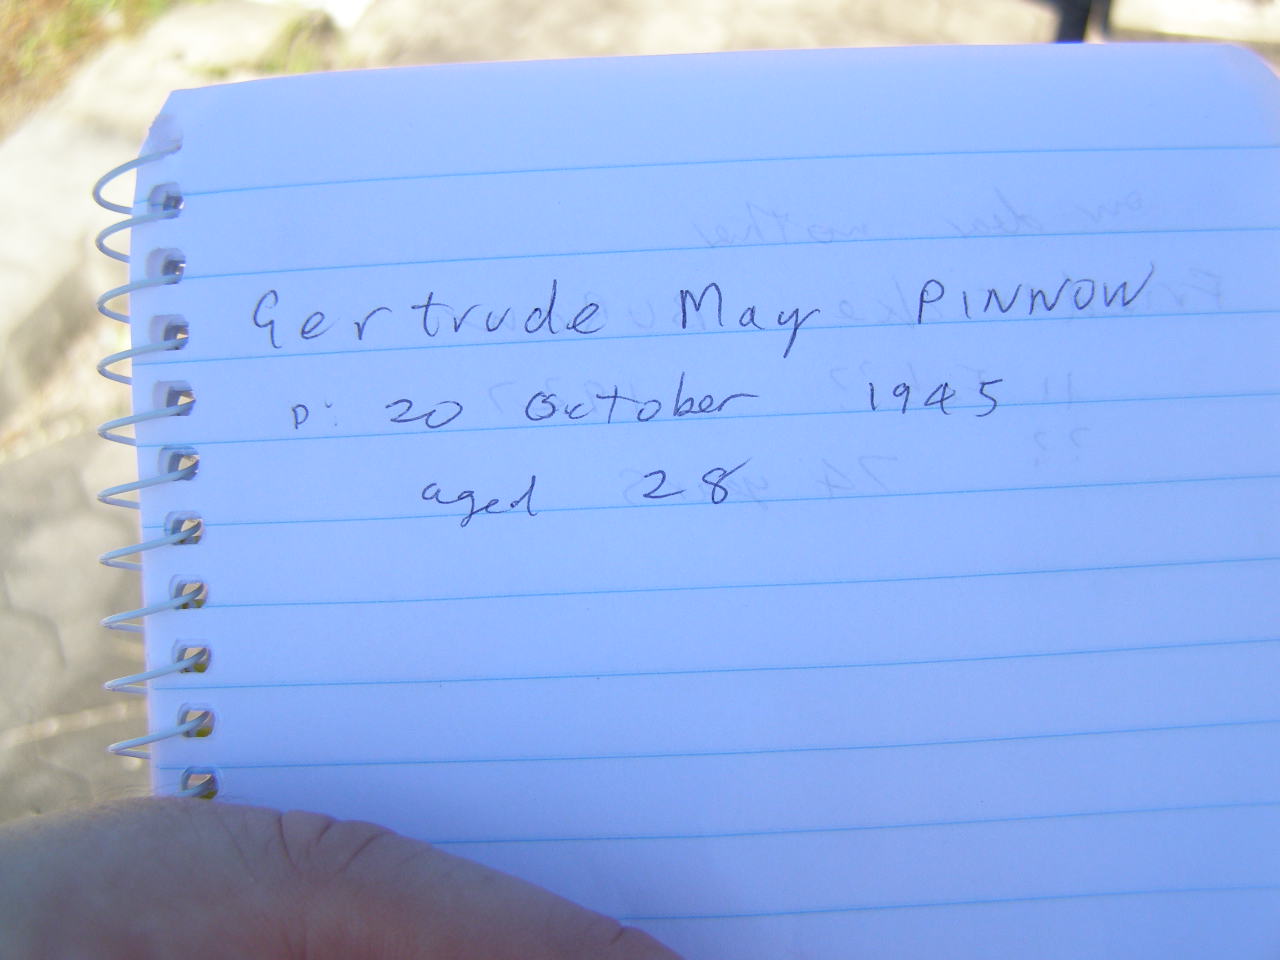 Gertrude May PINNOW
D: 20 October 1945
aged 28